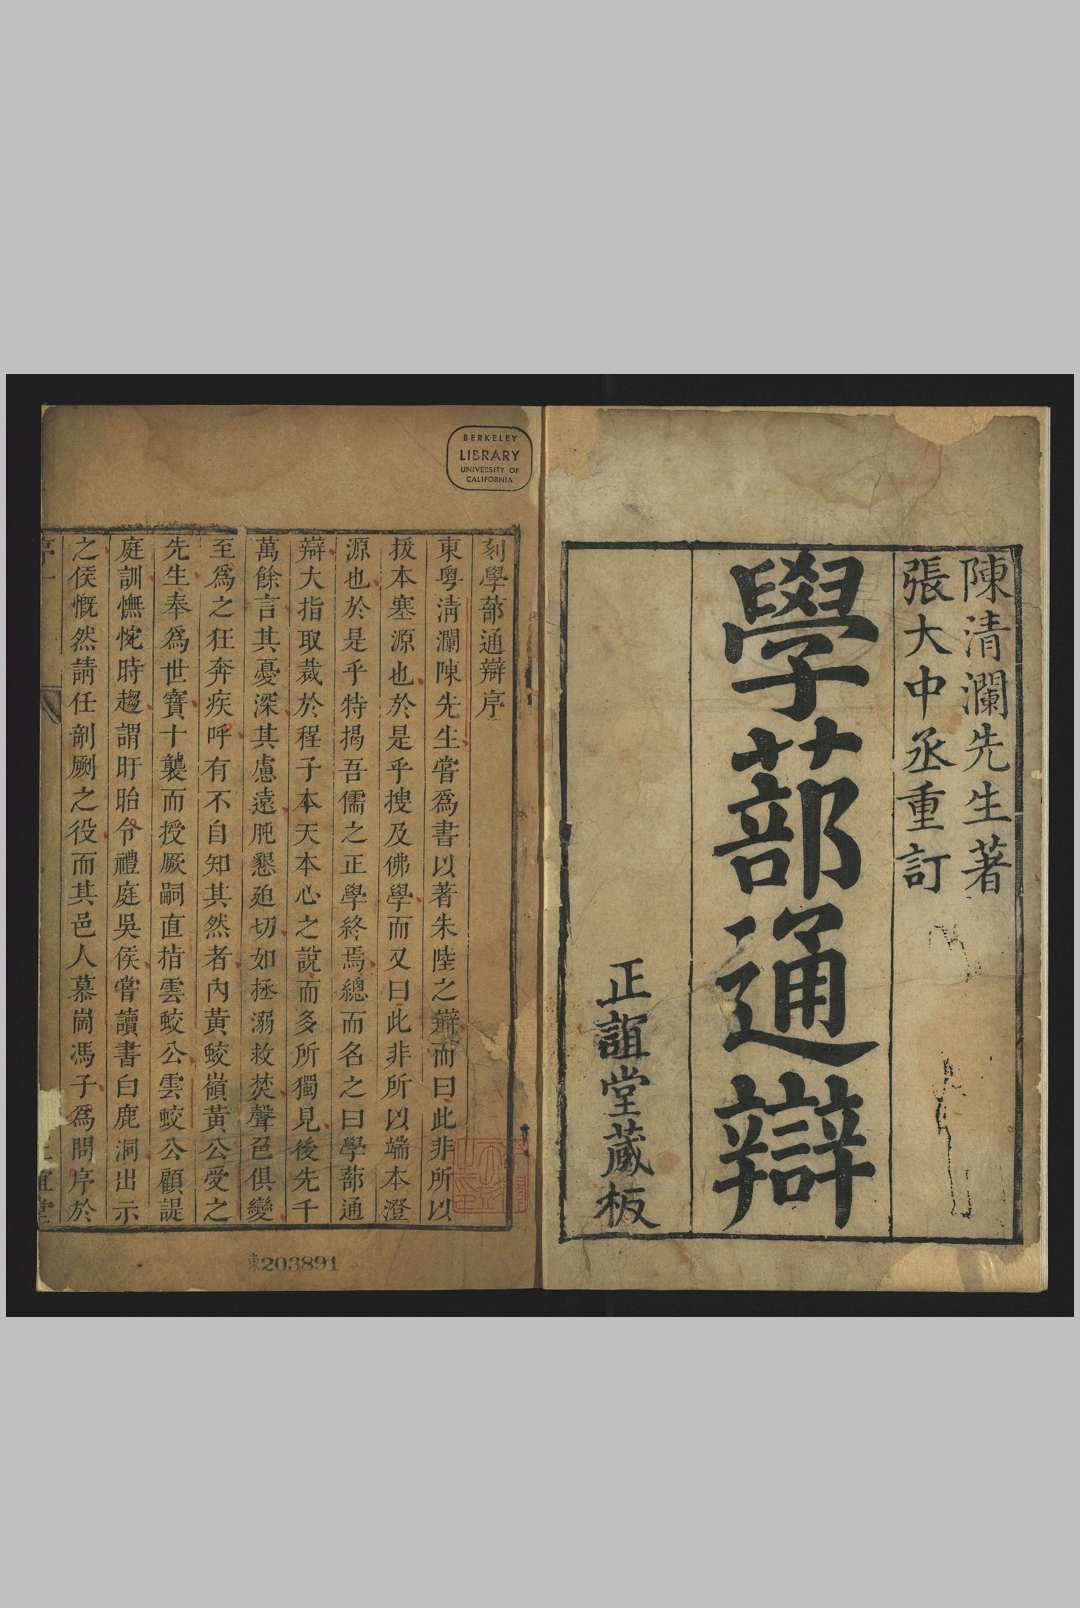 陳清瀾先生著
張大中丞重訂
學蔀通辯
正誼堂藏板
BERKELEY
LIBRARY
UNIVERSITY OF
CALIFORNIA
刻學蔀通辯序
東粵淸瀾陳先生嘗爲書以著朱陸之辯而曰此非所以
拔本塞源也於是乎搜及佛學而又曰此非所以端本澄
源也於是乎特揭吾儒之正學終焉總而名之曰學蔀通
辯大指取裁於程子本天本心之說而多所獨見後先千
萬餘言其憂深其慮遠肫懇迫切如拯溺救焚聲色俱變
至爲之狂奔疾呼有不自知其然者內黃蛟嶺黃公受之
先生奉爲世寶十襲而授厥嗣直指雲蛟公雲蛟公顧諟
庭訓憮恱時趨謂盱眙令禮庭吳侯嘗讀書白鹿洞出示
之侯慨然請任剞劂之役而其邑人慕崗馮子爲問序於
序一
203891